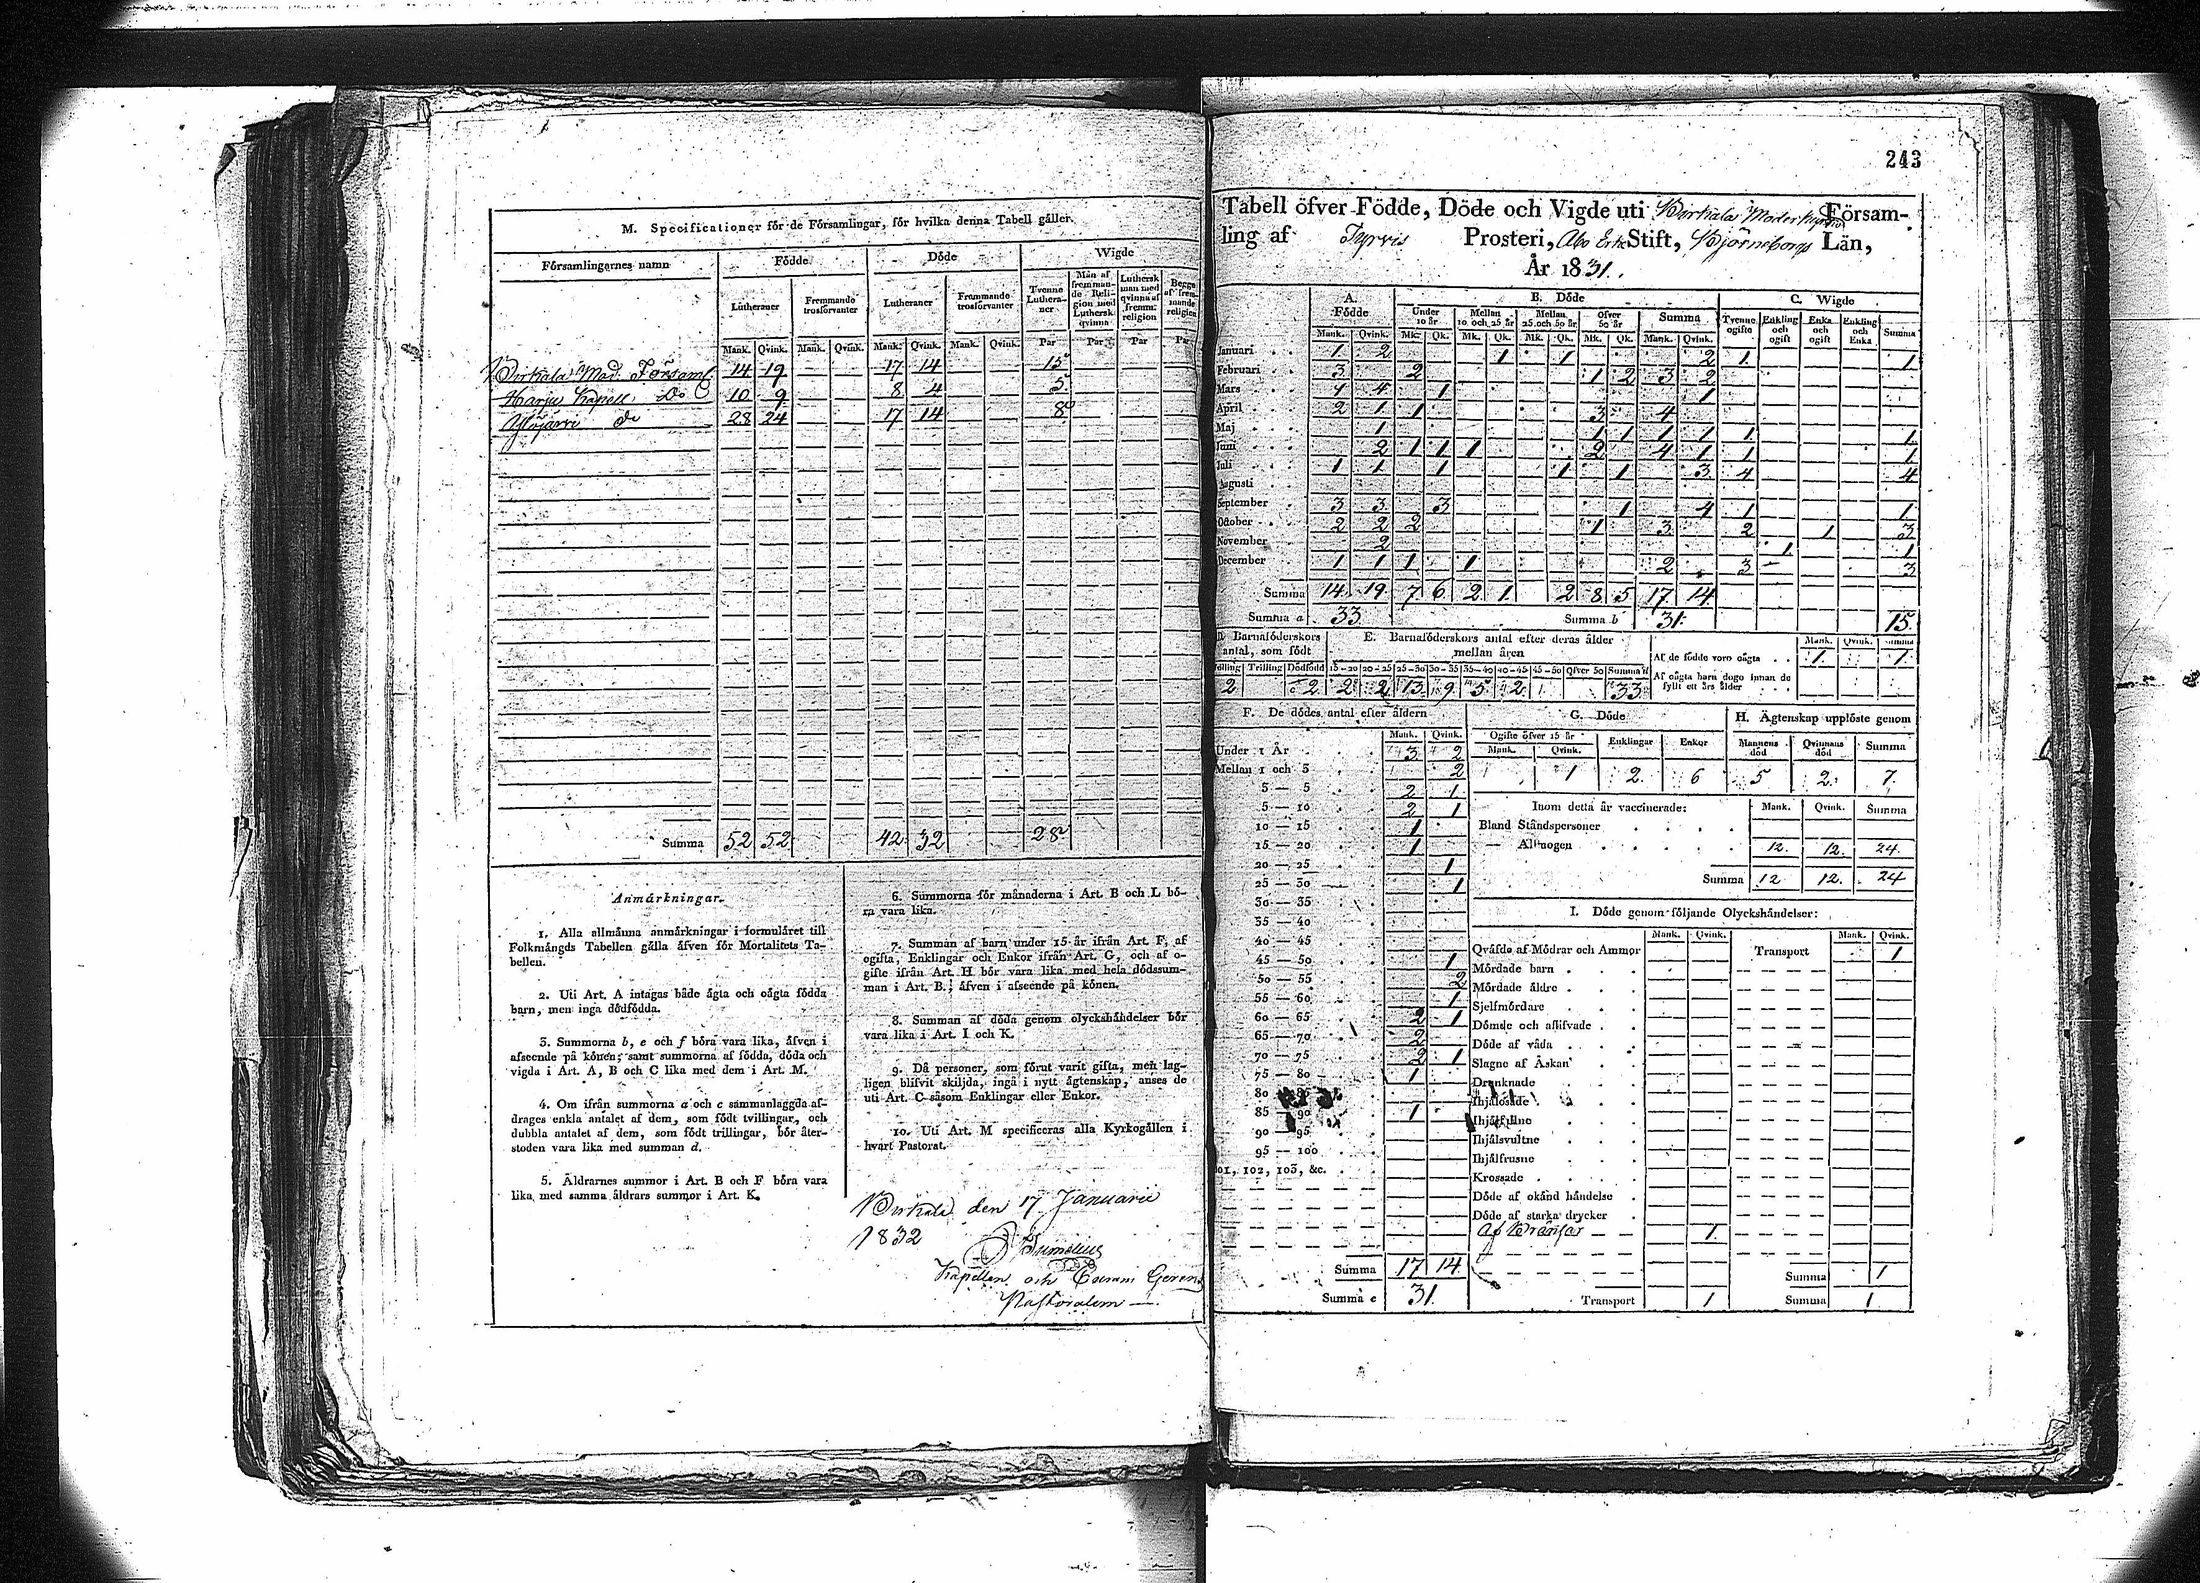 M. Specificationer för de Församlingar, för hvilka denna Tabell gäller.
Församlingarnes namn Födde Döde Wigde
Lutheraner Främmande trosförvanter Lutheraner Främmande trosförvanter Tvenne Lutheraner Män af främmande Religion med Luthersk qvinna Luthersk man med qvinna af fremm: religion Begge af främmande religion
Mank. Qvink. Mank. Qvink. Mank. Qvink. Mank. Qvink. Par Par Par Par
Birkala Mod. Församl. 14 19 17 14 15
Harju Kapell Do 10 9 8 4 5
Ylöjärvi do 28 24 17 14 8
Summa 52 52 42 32 28
Anmärkningar.
1. Alla allmänna anmärkningar i formuläret till
Folkmängds Tabellen gälla äfven för Mortalitets Ta-
bellen.
2. Uti Art. A intagas både ägta och oägta födda
barn, men inga dödfödda.
3. Summorna b, e och f böra vara lika, äfven i
afseende på könen; samt summorna af födda, döda och
vigda i Art. A, B och C lika med dem i Art. M.
4. Om ifrån summorna a och c sammanlaggda af-
drages enkla antalet af dem, som födt tvillingar, och
dubbla antalet af dem, som födt trillingar, bör åter-
stoden vara lika med summan d.
5. Äldrarnes summor i Art. B och F böra vara
lika med samma åldrars summor i Art. K.
6. Summorna för månaderna i Art. B och L bö-
ra vara lika.
7. Summan af barn under 15 år ifrån Art. F, af
ogifta, Enklingar och Enkor ifrån Art. G, och af o-
gifte ifrån Art. H bör vara lika med hela dödssum-
man i Art. B.; äfven i afseende på könen.
8. Summan af döda genom olyckshändelser bör
vara lika i Art. I och K.
9. Då personer, som förut varit gifta, men lag-
ligen blifvit skiljda, ingå i nytt ägtenskap, anses de
uti Art. C såsom Enklingar eller Enkor.
10. Uti Art. M specificeras alla Kyrkogällen i
hvart Pastorat.
Birkala den 17 Januarii
1832
Kapellan och
Pastoralem
243
Tabell öfver Födde, Döde och Vigde uti Birkala Moderkyrko Försam-
ling af Tyrvis Prosteri, Abo Erke Stift, Björneborgs Län,
År 1831.
A. Födde B. Döde C. Wigde
Under 10 år Mellan 10 och 25 år Mellan 25 och 50 år Öfver 50 år Summa Tvenne ogifte Enkling och ogift Enka och ogift Enkling och Enka Summa
Mank. Qvink. Mk. Qk. Mk. Qk. Mk. Qk. Mk. Qk. Mank. Qvink.
Januari 1 2 1 1 2 1 1
Februari 3 2 1 2 3 2
Mars 1 4 1 1
April 2 1 1 3 4
Maj 1 1 1 1 1 1 1
Juni 2 1 1 1 2 4 1 1 1
Juli 1 1 1 1 1 3 4 4
Augusti
September 3 3 3 1 4 1 1
October 2 2 2 1 3 2 1 3
November 2 1 1
December 1 1 1 1 2 3 3
Summa 14 19 7 6 2 1 2 8 5 17 14
Summa a 33 Summa b 31 15
D. Barnaföderskors antal, som födt E. Barnaföderskors antal efter deras ålder mellan åren
Trilling Dödfödd 15-20 20-25 25-30 30-35 35-40 40-45 45-50 Öfver 50 Summa d
2 2 2 2 13 9 5 2 33
Mank. Qvink. Summa
Af de födde voro oägta 1 1
Af oägta barn dogo innan de fyllt ett års ålder
F. De dödes antal efter åldern
Mank. Qvink.
Under 1 År 3 2
Mellan 1 och 3 2
3 — 5 2 1
5 — 10 2 1
10 — 15 1
15 — 20 1
20 — 25 1
25 — 30 1
30 — 35
35 — 40
40 — 45
45 — 50 1
50 — 55 2
55 — 60 1
60 — 65 2 1
65 — 70 2
70 — 75 2 1
75 — 80 1
80
85 — 90 1
90 — 95
95 — 100
101, 102, 103, &c.
Summa 17 14
Summa e 31
G. Döde
Ogifte öfver 15 år Enklingar Enkor
Mank. Qvink.
1 2 6
H. Ägtenskap upplöste genom
Mannens död Qvinnans död Summa
5 2 7
Inom detta år vaccinerade: Mank. Qvink. Summa
Bland Ståndspersoner
— Allmogen 12 12 24
Summa 12 12 24
I. Döde genom följande Olyckshändelser:
Mank. Qvink. Mank. Qvink.
Qväfde af Mödrar och Ammor Transport 1
Mördade barn
Mördade äldre
Sjelfmördare
Dömde och aflifvade
Döde af våda
Slagne af Åskan
Drunknade
Ihjälfallne
Ihjälsvultne
Ihjälfrusne
Krossade
Döde af okänd händelse
Döde af starka drycker
1
Summa 1
Transport 1 Summa 1